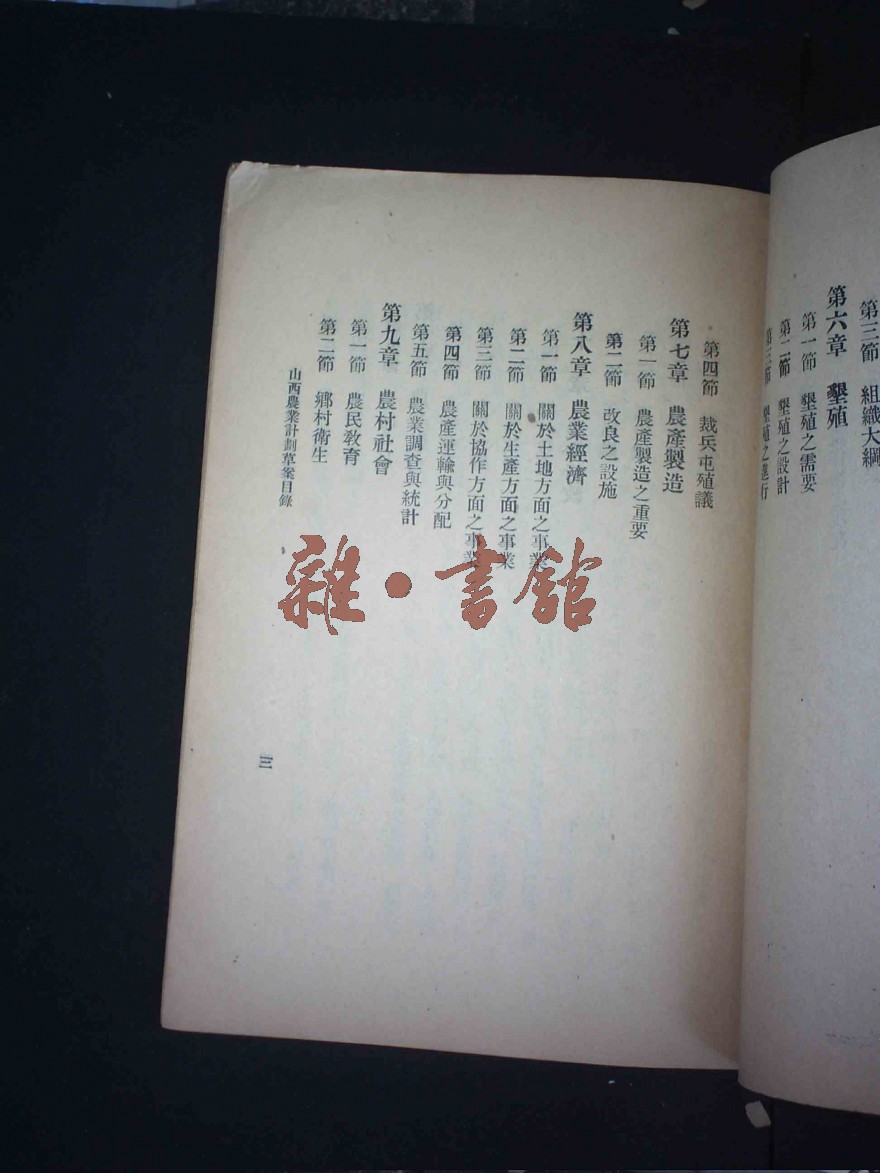 第三節 組織大綱
第六章 墾殖
第一節 墾殖之需要
第二節 墾殖之設計
第三節 墾殖之進行
第四節 裁兵屯殖議
第七章 農產製造
第一節 農產製造之重要
第二節 改良之設施
第八章 農業經濟
第一節 關於土地方面之事業
第二節 關於生產方面之事業
第三節 關於協作方面之事業
第四節 農產運輸與分配
第五節 農業調查與統計
第九章 農村社會
第一節 農民教育
第二節 鄉村衛生
山西農業計劃草案目錄
三
雜·書館